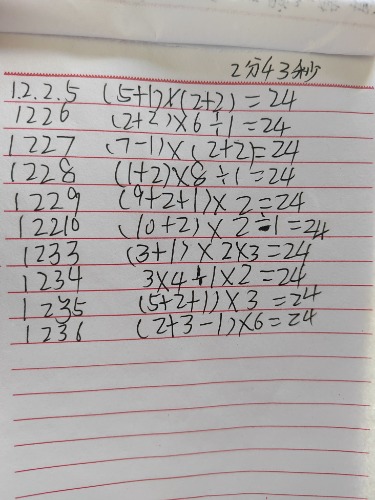 2分43秒
1.2.2.5 (5+1)×(2+2)=24
1226 (2+2)×6÷1=24
1227 (7-1)×(2+2)=24
1228 (1+2)×8÷1=24
1229 (9+2+1)×2=24
12210 (10+2)×2÷1=24
1233 (3+1)×2×3=24
1234 3×4+1×2=24
1235 (5+2+1)×3=24
1236 (2+3-1)×6=24